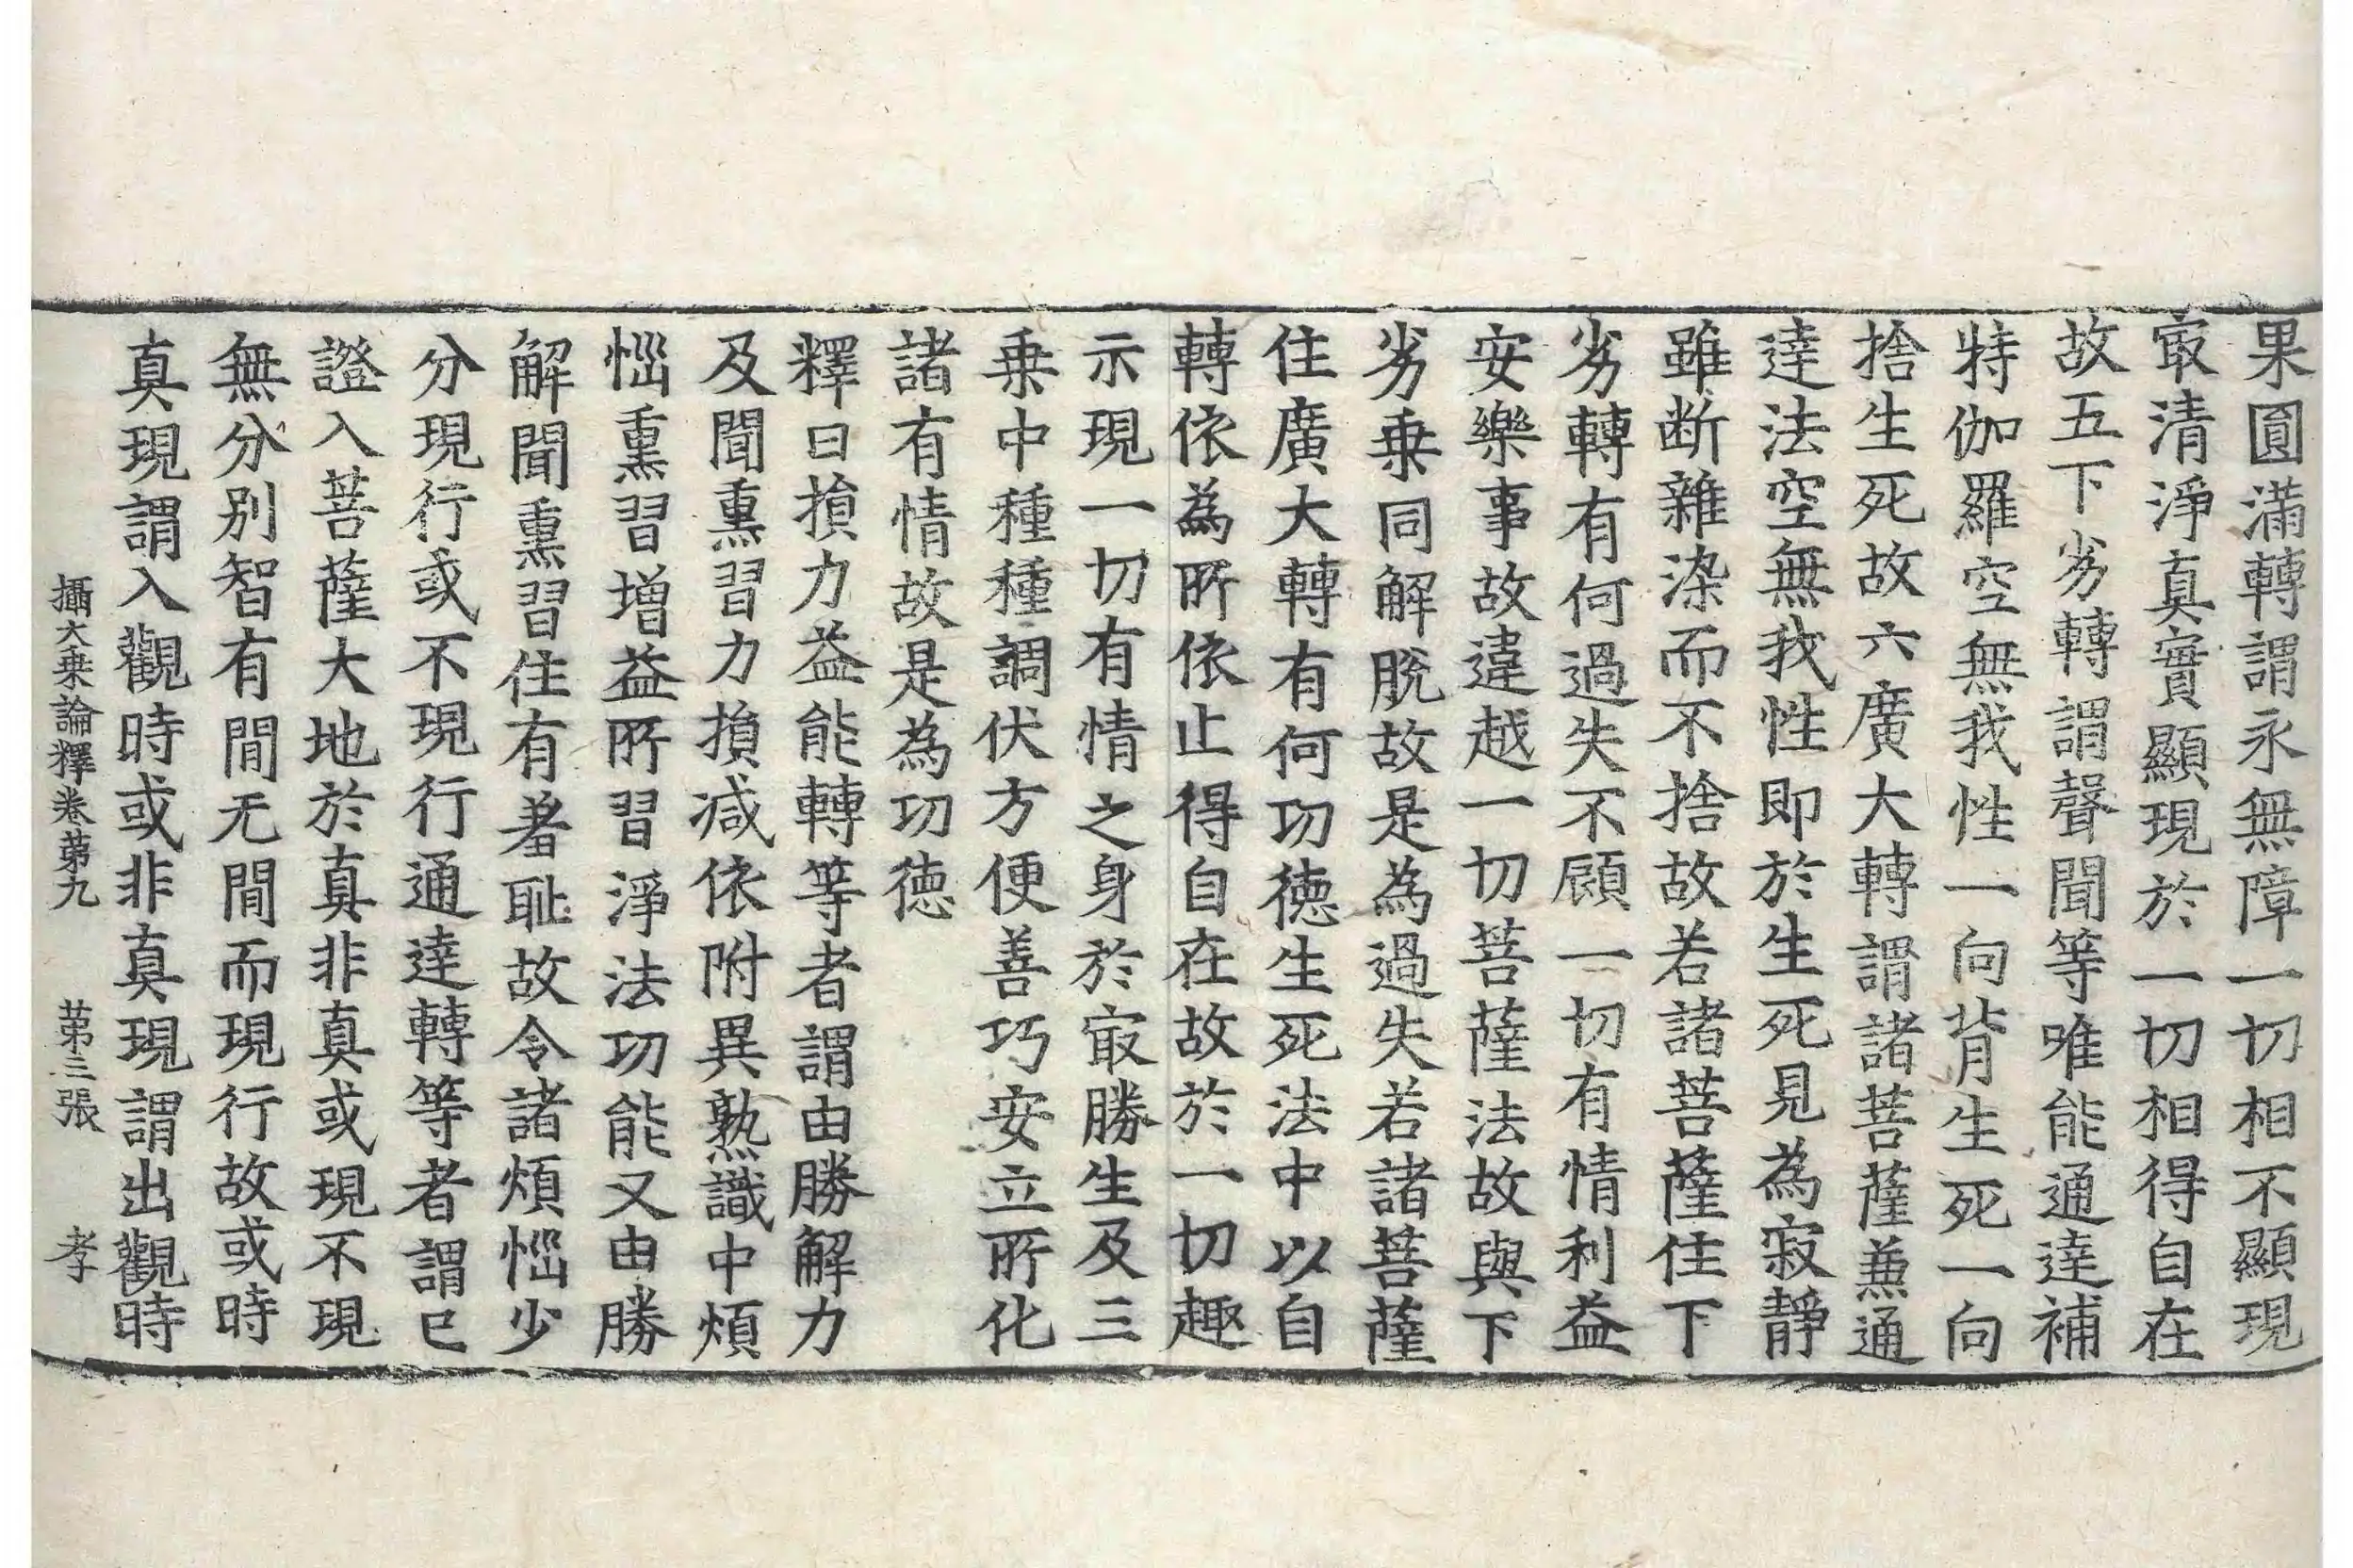 果圓滿轉謂永無障一切相不顯現
冣清淨真實顯現於一切相得自在
故五下劣轉謂聲聞等唯能通達補
特伽羅空無我性一向背生死一向
捨生死故六廣大轉謂諸菩薩兼通
達法空無我性即於生死見為寂靜
雖断雜染而不捨故若諸菩薩住下
劣轉有何過失不顧一切有情利益
安樂事故違越一切菩薩法故與下
劣乗同解脫故是為過失若諸菩薩
住廣大轉有何功德生死法中以自
轉依為所依止得自在故於一切趣
示現一切有情之身於冣勝生及三
乗中種種調伏方便善巧安立所化
諸有情故是為功德
釋曰損力益能轉等者謂由勝解力
及聞熏習力損减依附異熟識中煩
惱熏習增益所習淨法功能又由勝
解聞熏習住有羞耻故令諸煩惱少
分現行或不現行通達轉等者謂已
證入菩薩大地於真非真或現不現
無分别智有間无間而現行故或時
真現謂入觀時或非真現謂出觀時
攝大乗論釋卷苐九 苐三張 孝